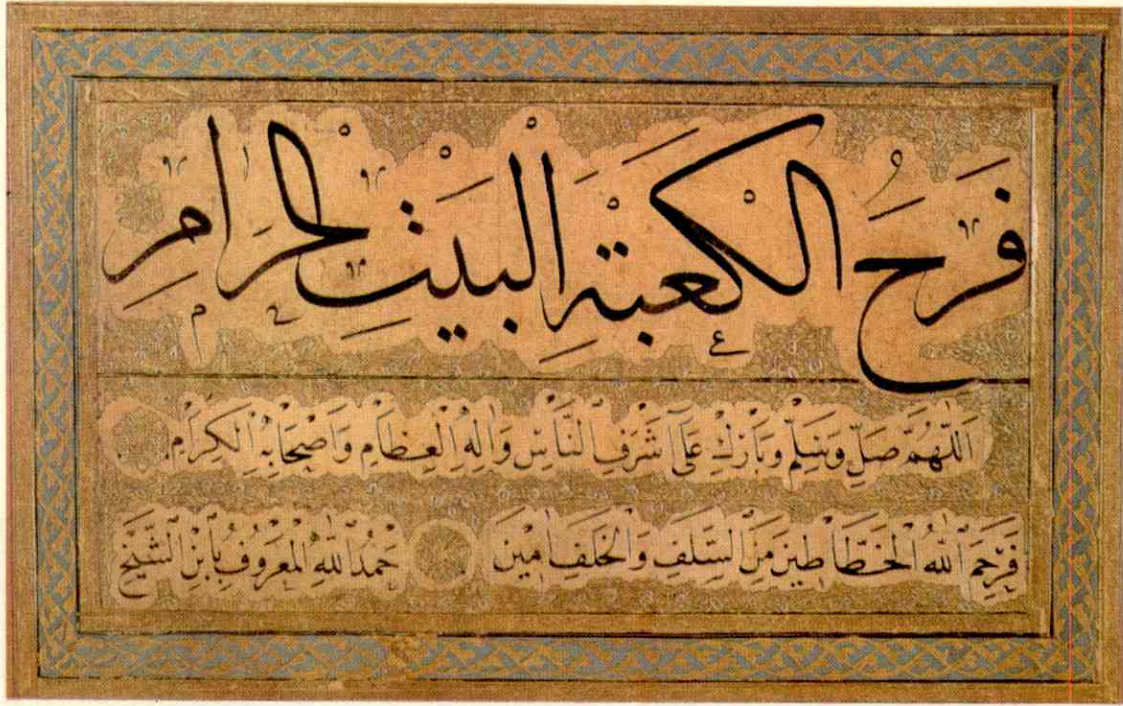 فَرَحُ الْكَعْبَةِ الْبَيْتِ الْحَرَامِ
اَللّٰهُمَّ صَلِّ وَسَلِّمْ وَبَارِكْ عَلَى اَشْرَفِ النَّاسِ وَاٰلِهِ الْعِظَامِ وَاَصْحَابِهِ الْكِرَامِ
فَرَحِمَ اللّٰهُ الْخَطَّاطِينَ مِنَ السَّلَفِ وَالْخَلَفِ اٰمِينَ حَمْدُ اللّٰهِ الْمَعْرُوفُ بِابْنِ الشَّيْخِ